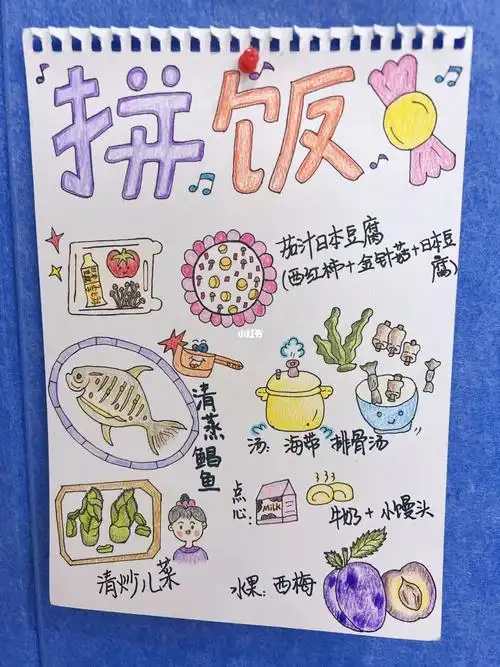 拼饭
茄汁日本豆腐
(西红柿+金针菇+日本豆
腐)
小红书
清蒸鲳鱼
汤:海带 排骨汤
点
心:
Milk
牛奶+小馒头
清炒儿菜
水果:西梅